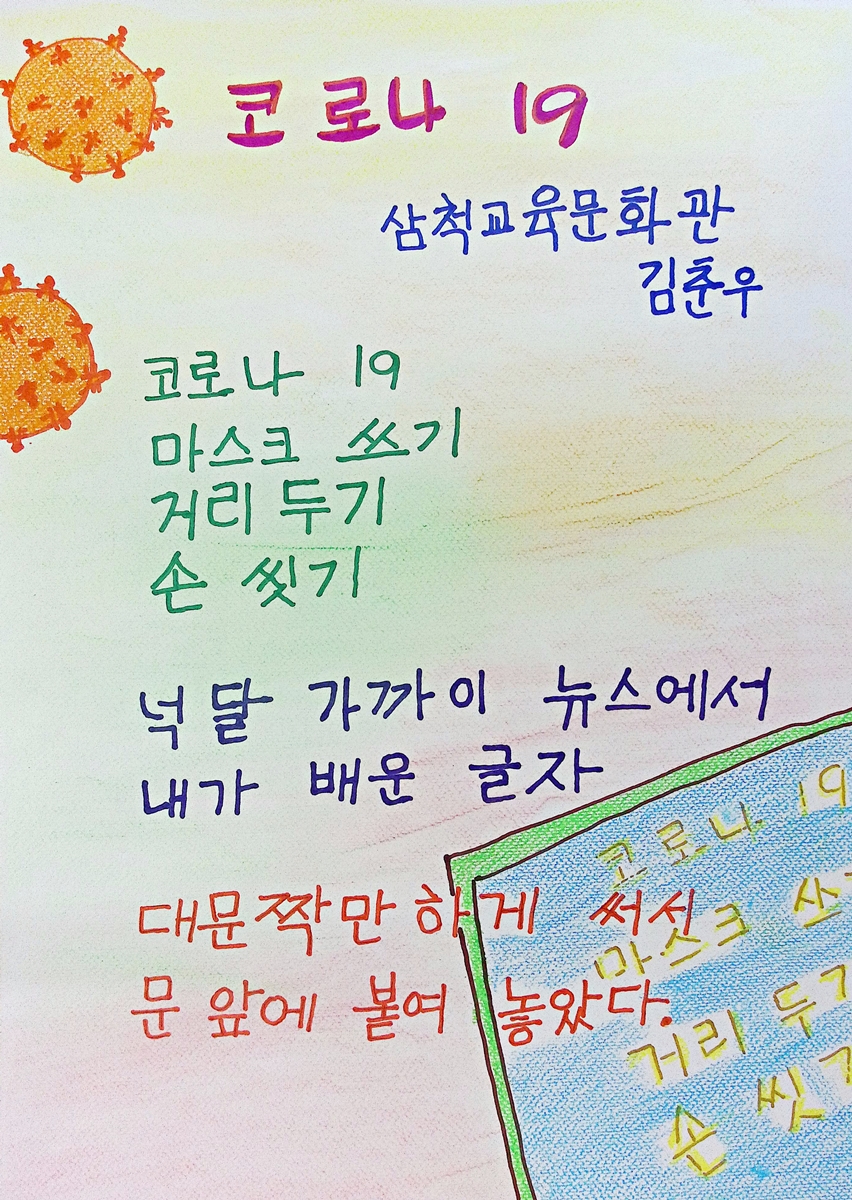 코로나 19
삼척교육문화관
김춘우
코로나 19
마스크 쓰기
거리 두기
손 씻기
넉 달 가까이 뉴스에서
내가 배운 글자
대문짝만 하게 써서
문 앞에 붙여 놓았다.
코로나 19
마스크 쓰
거리 두기
손 씻기